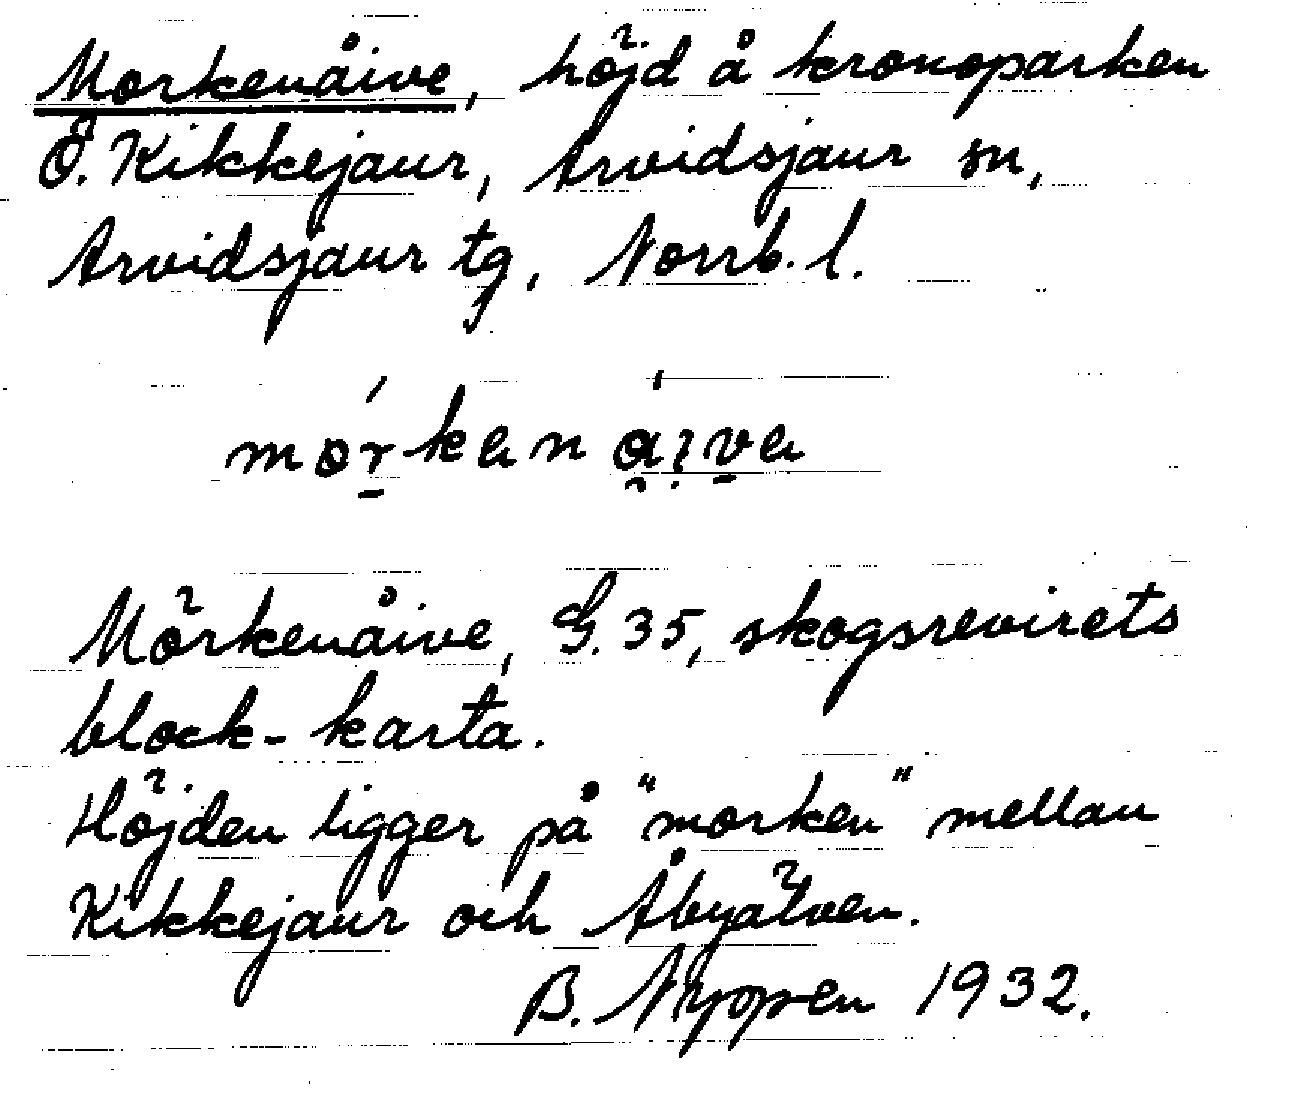 Morkenåive, höjd å kronoparken
Ö. Kikkejaur, Arvidsjaur sn,
Arvidsjaur tg, Norrb. l.
mo̱rkenaive
Mörkenåive, G. 35, skogsrevirets
block-karta.
Höjden ligger på "morken" mellan
Kikkejaur och Åbyälven.
B. Nyppen 1932.